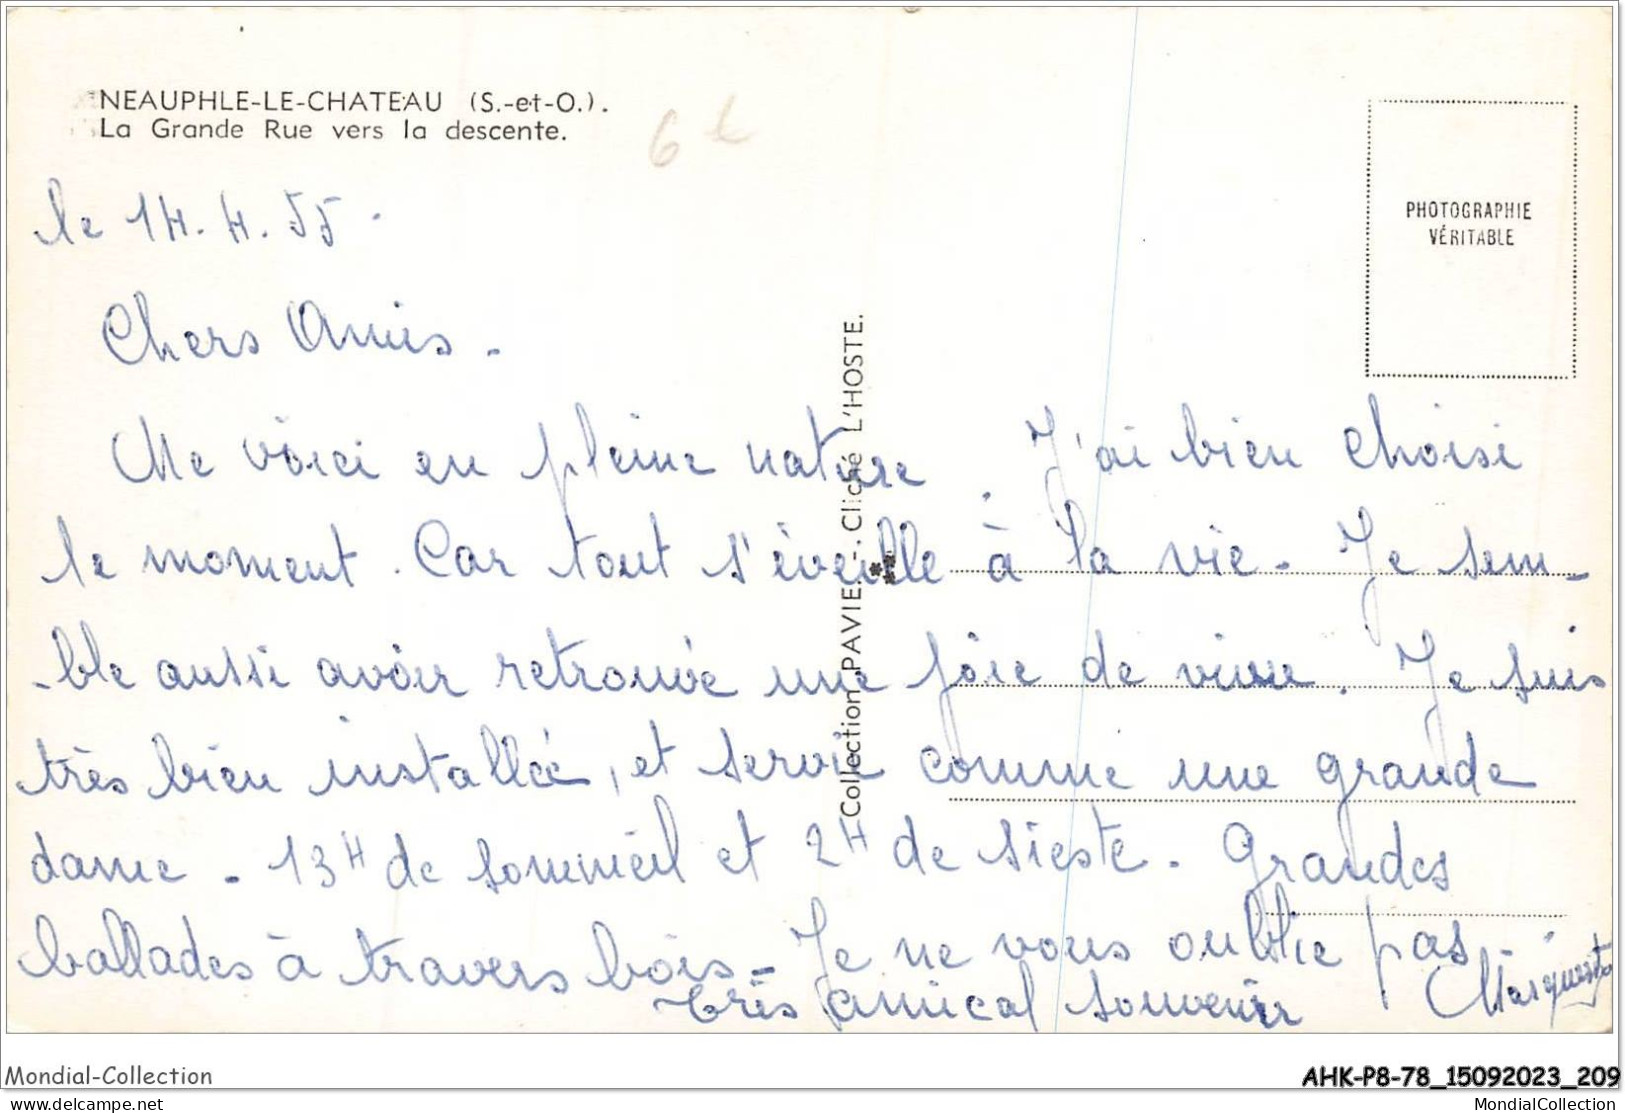 NEAUPHLE-LE-CHATEAU (S.-et-O.).
La Grande Rue vers la descente.
6 €
PHOTOGRAPHIE
VÉRITABLE
le 14.4.55.
Chers Amis.
Me voici en pleine nature. J'ai bien choisi
le moment. Car tout s'éveille à la vie. Je sem-
-ble aussi avoir retrouvé une joie de vivre. Je suis
très bien installée, et servie comme une grande
dame. 13H de sommeil et 2H de sieste. Grandes
ballades à travers bois. Je ne vous oublie pas.
très amical souvenir
Collection PAVIE -. Cliché L'HOSTE.
Mondial-Collection
AHK-P8-78_15092023_209
delcampe.net
MondialCollection